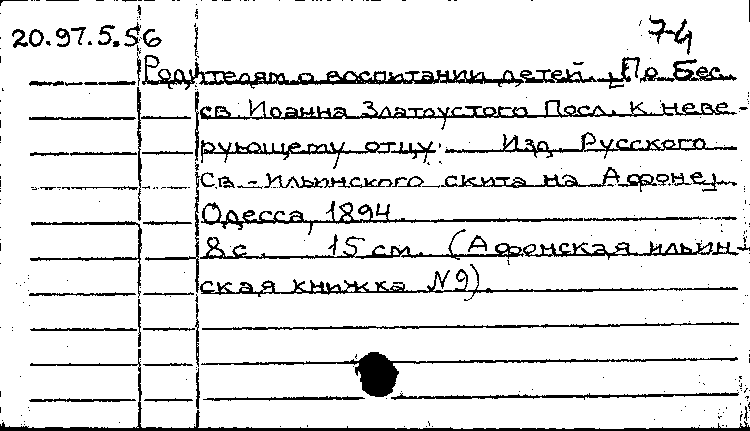 20.97.5.56 7-4
Родителям о воспитании детей. [По Бес.
св. Иоанна Златоустого Посл. к неве-
рующему отцу. Изд. Русского
Св.-Ильинского скита на Афоне]
Одесса, 1894.
8 с. 15 см. (Афонская ильин-
ская книжка №9).